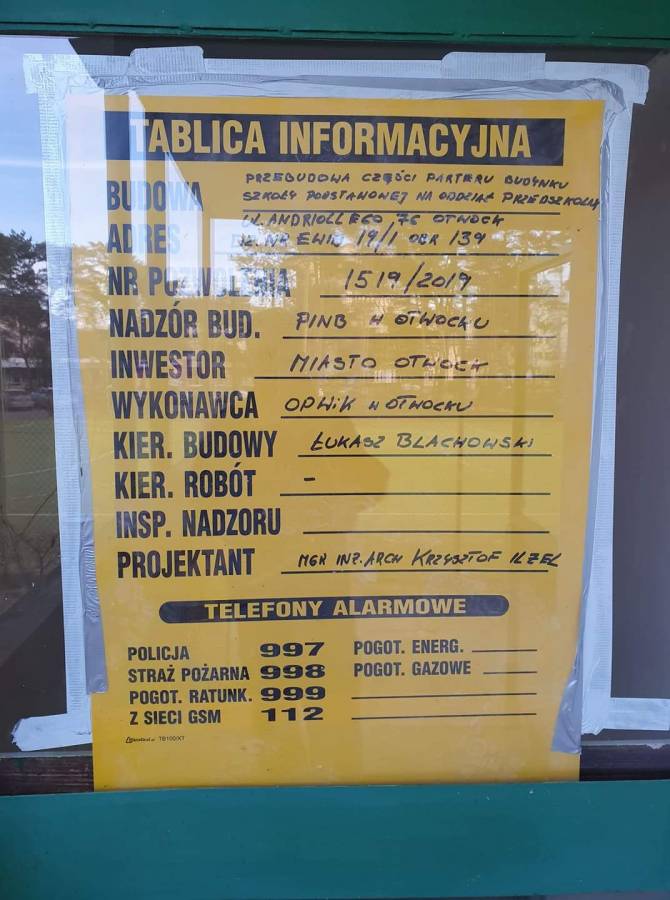 TABLICA INFORMACYJNA
BUDOWA PRZEBUDOWA CZĘŚCI PARTERU BUDYNKU
SZKOŁY PODSTAWOWEJ NA ODDZIAŁ PRZEDSZKOLNY
UL. ANDRIOLLEGO 76 OTWOCK
ADRES DZ. NR EWID 19/1 OBR 139
NR POZWOLENIA 1519/2019
NADZÓR BUD. PINB W OTWOCKU
INWESTOR MIASTO OTWOCK
WYKONAWCA OPWIK W OTWOCKU
KIER. BUDOWY ŁUKASZ BLACHOWSKI
KIER. ROBÓT -
INSP. NADZORU
PROJEKTANT MGR INŻ. ARCH KRZYSZTOF
TELEFONY ALARMOWE
POLICJA 997 POGOT. ENERG.
STRAŻ POŻARNA 998 POGOT. GAZOWE
POGOT. RATUNK. 999
Z SIECI GSM 112
TB100/XT